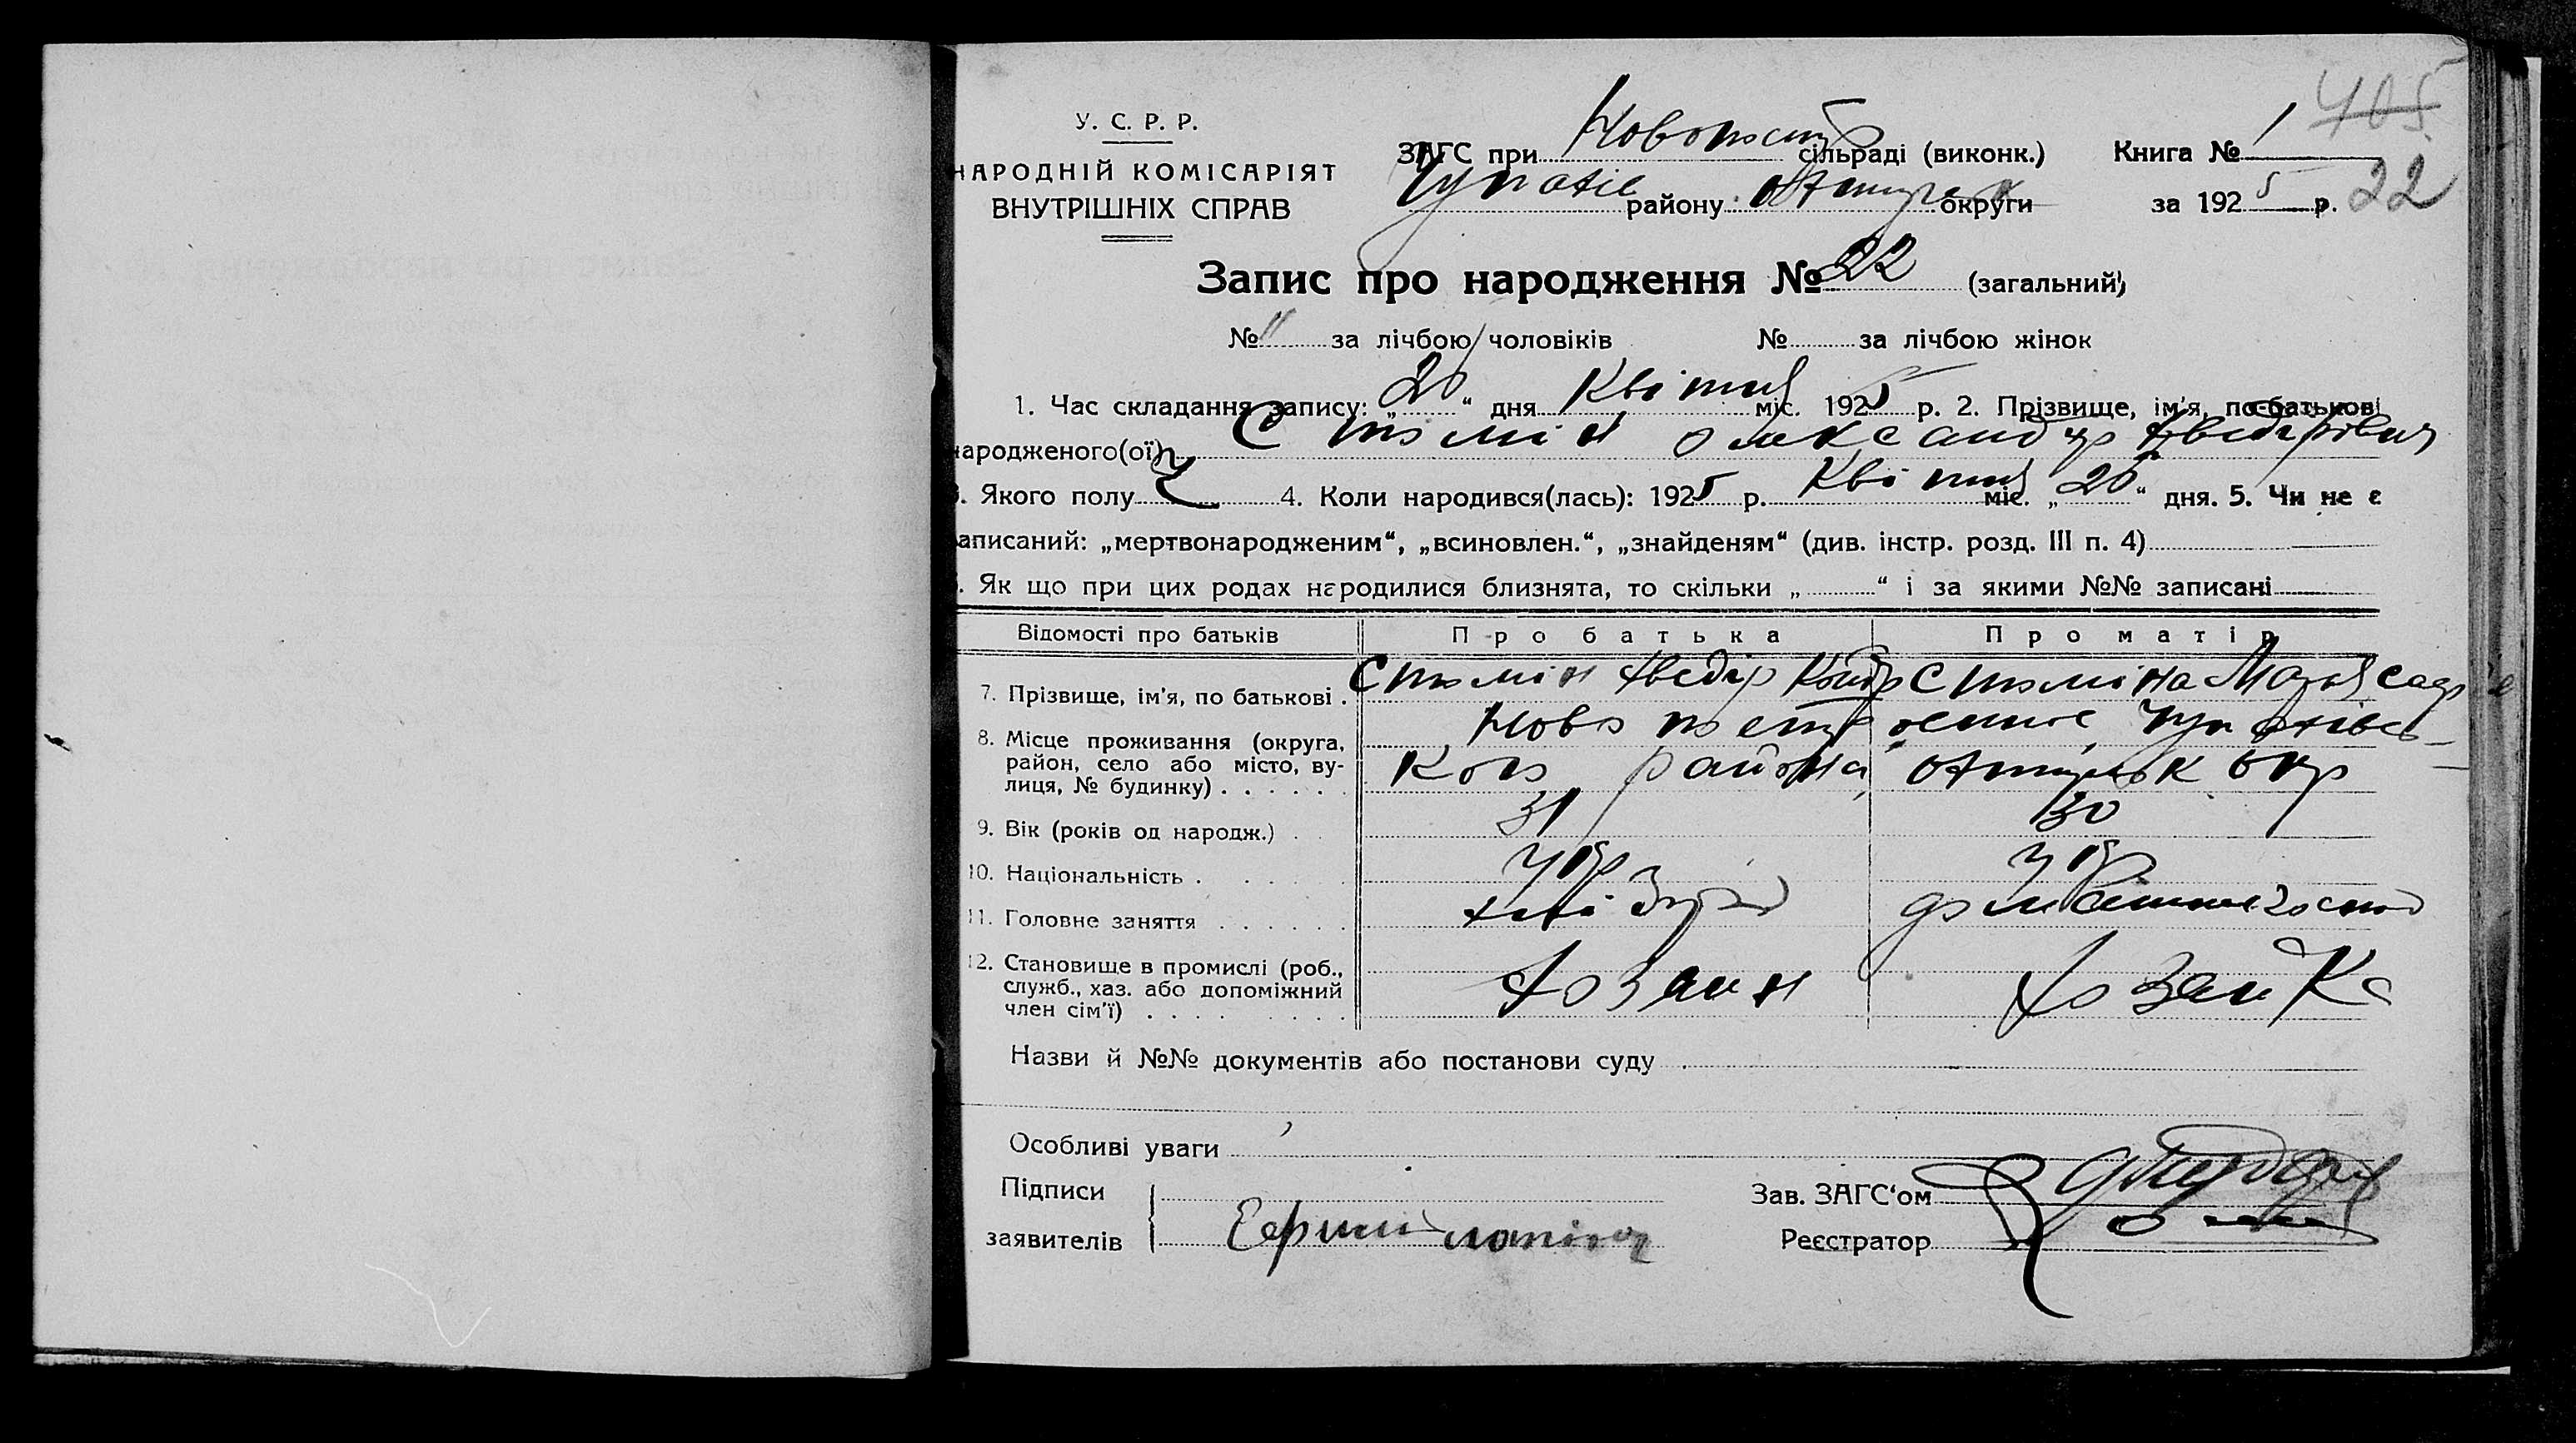 405
У. С. Р. Р.
НАРОДНІЙ КОМІСАРІЯТ
ВНУТРІШНІХ СПРАВ
ЗАГС при сільраді (виконк.) Книга № 1
району округи за 1925 р. 22
Запис про народження № 22 (загальний)
№ 11 за лічбою чоловіків № за лічбою жінок
1. Час складання запису: „20“ дня Квітня міс. 1925 р. 2. Прізвище, ім'я, по-батькові
народженого(ої) Стомін Олександр Хведірович
3. Якого полу Ч 4. Коли народився(лась): 1925 р. Квітня міс. „20“ дня. 5. Чи не є
записаний: „мертвонародженим“, „всиновлен.“, „знайденям“ (див. інстр. розд. III п. 4)
6. Як що при цих родах народилися близнята, то скільки „ “ і за якими №№ записані
Відомості про батьків Про батька Про матір
7. Прізвище, ім'я, по батькові . Стомін Хведір Стоміна Марья
8. Місце проживання (округа,
район, село або місто, ву-
лиця, № будинку) . . . . . . кого района окр
9. Вік (років од народж.) . . 31 30
10. Національність . . . . . укр укр
11. Головне заняття . . . . . . хлібороб домашнє господ
12. Становище в промислі (роб.,
служб., хаз. або допоміжний
член сім'ї) . . . . . . . . . хозаин хозайка
Назви й №№ документів або постанови суду
Особливі уваги
Підписи
заявителів
Зав. ЗАГС'ом
Реєстратор